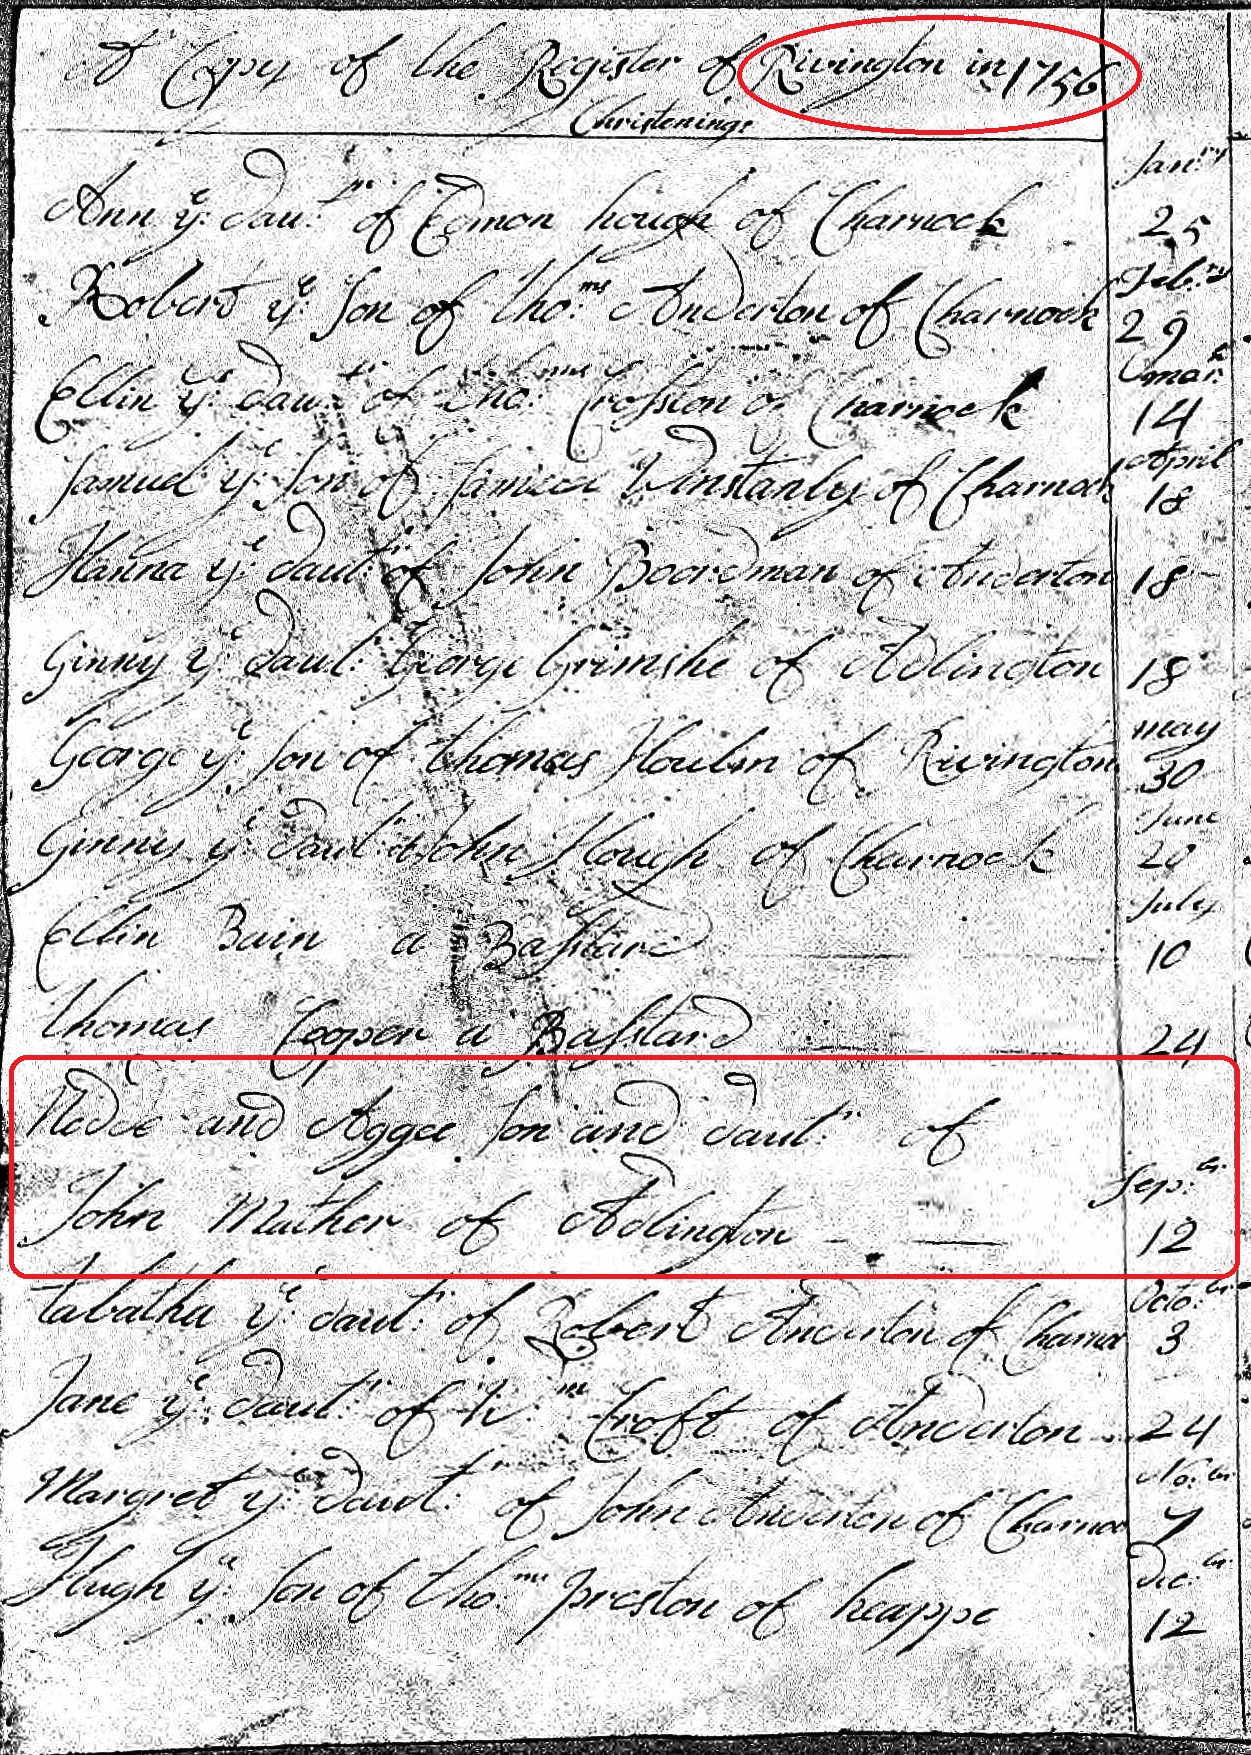 A Copy of the Register of Rivington in 1756
Christenings
Jan:ry
Ann ye: daut:r of Edmon hough of Charnock 25
Feb:ry
Robert ye: Son of tho:ms Anderton of Charnock 29
mar:
Ellin ye: daut:r of tho:ms Crosston of Charnock 14
April
Samuel ye: Son of Winstanly of Charnock 18
Hanna ye: daut:r of John Boardman of Anderton 18
Ginny ye: daut: George Grimshe of Adlington 18
may
George ye: Son of thomas of Rivington 30
June
Ginny ye: daut:r of John Hough of Charnock 20
July
Ellin Bain a Basstard 10
thomas Cooper a Basstard 24
and Aggee Son and daut:r of
Sep:br
John Mather of Adlington 12
Octo:br
tabatha ye: daut:r of Robert Anderton of Charnoc 3
Jane ye: daut:r of W:m Croft of Anderton 24
No:br
Margret ye: daut: of John Anderton of Charnoc 7
Dec:br
Hugh ye: Son of tho:ms preston of heappe 12